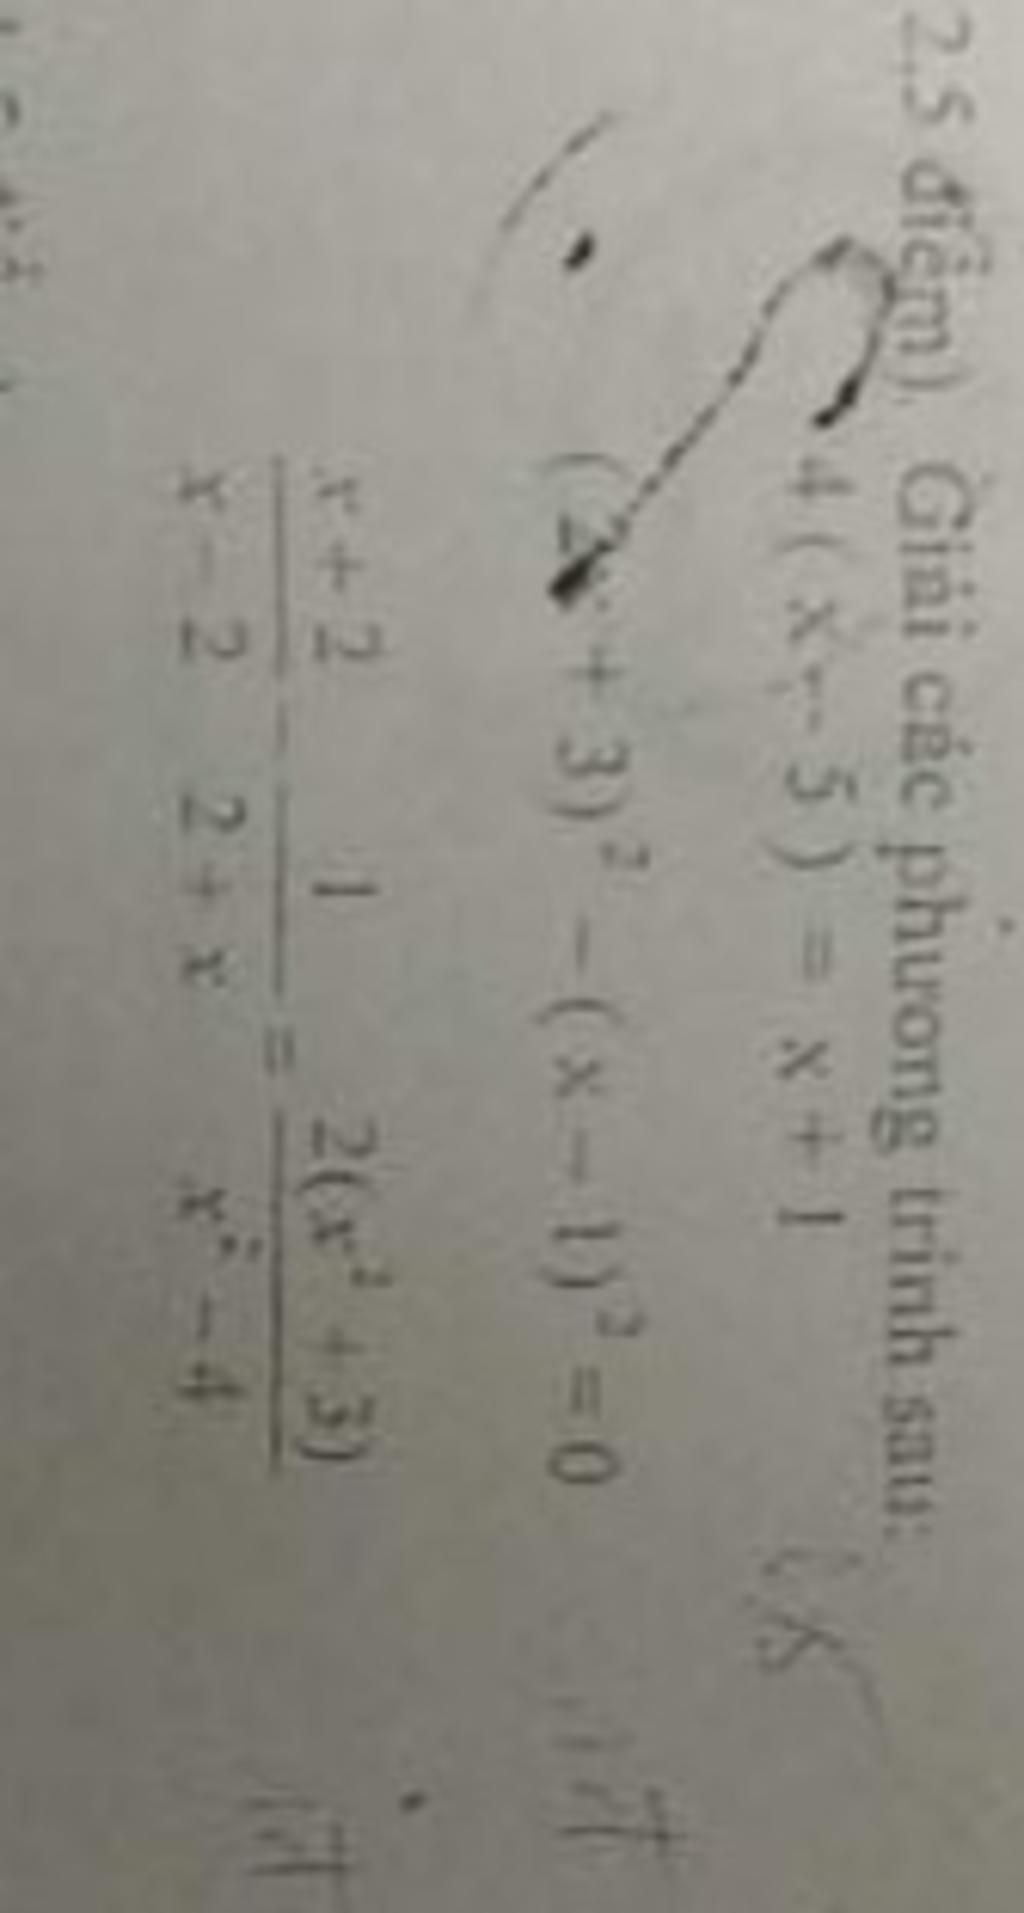 2.5 điểm). Giải các phương trình sau:
4(x - 5) = x + 1
(2x + 3)² - (x - 1)² = 0
x + 2 / x - 2 - 1 / 2 + x = 2(x² + 3) / x² - 4